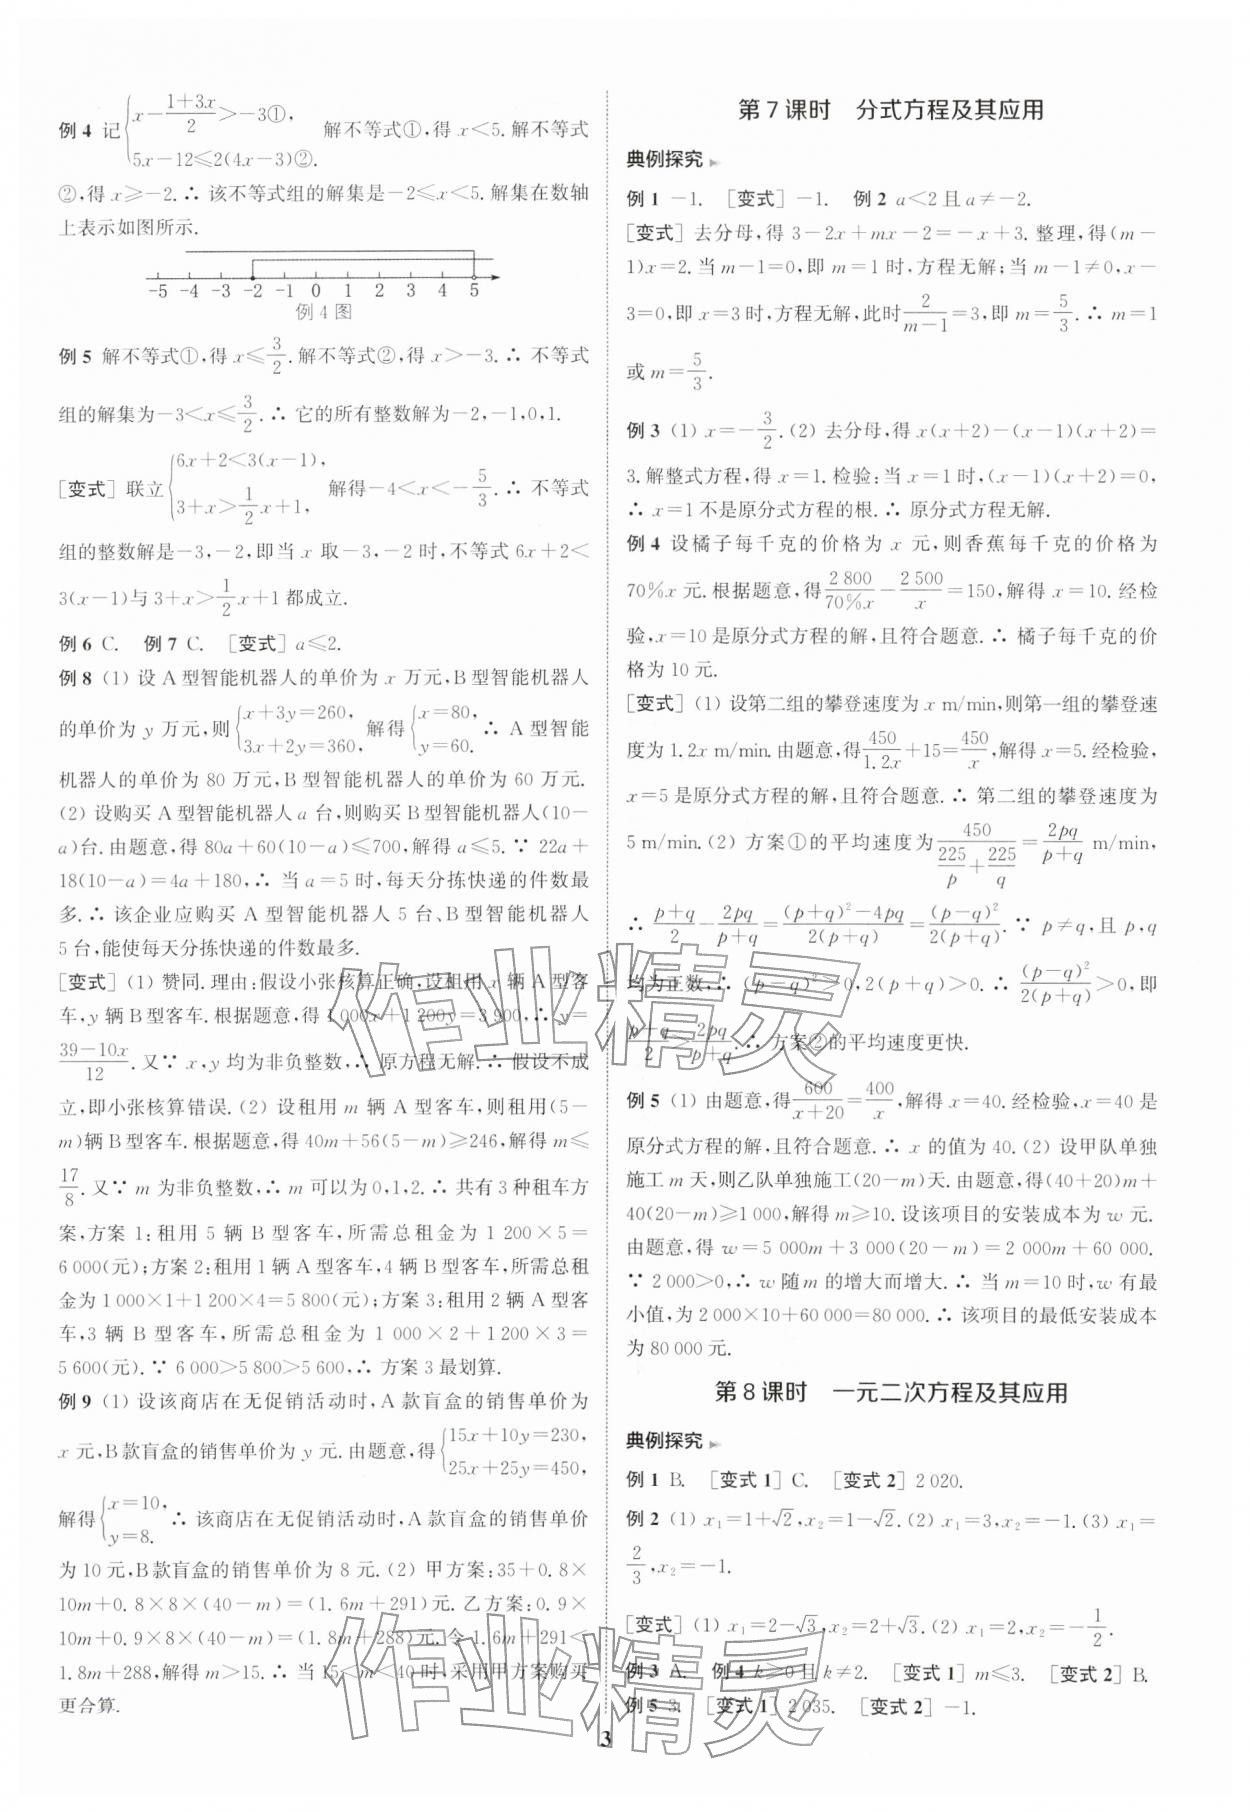 例 4 记{x－(1＋3x)/2＞－3①, 5x－12≤2(4x－3)②. 解不等式①,得 x＜5. 解不等式
②,得 x≥－2. ∴ 该不等式组的解集是－2≤x＜5. 解集在数轴
上表示如图所示.
－5 －4 －3 －2 －1 0 1 2 3 4 5
例 4 图
例 5 解不等式①,得 x≤3/2. 解不等式②,得 x＞－3. ∴ 不等式
组的解集为－3＜x≤3/2. ∴ 它的所有整数解为－2,－1,0,1.
[变式] 联立{6x＋2＜3(x－1), 3＋x＞1/2x＋1, 解得－4＜x＜－5/3. ∴ 不等式
组的整数解是－3,－2,即当 x 取－3,－2 时,不等式 6x＋2＜
3(x－1)与 3＋x＞1/2x＋1 都成立.
例 6 C. 例 7 C. [变式] a≤2.
例 8 (1) 设 A 型智能机器人的单价为 x 万元,B 型智能机器人
的单价为 y 万元,则{x＋3y＝260, 3x＋2y＝360, 解得{x＝80, y＝60. ∴ A 型智能
机器人的单价为 80 万元,B 型智能机器人的单价为 60 万元.
(2) 设购买 A 型智能机器人 a 台,则购买 B 型智能机器人(10－
a)台. 由题意,得 80a＋60(10－a)≤700,解得 a≤5. ∵ 22a＋
18(10－a)＝4a＋180,∴ 当 a＝5 时,每天分拣快递的件数最
多. ∴ 该企业应购买 A 型智能机器人 5 台、B 型智能机器人
5 台,能使每天分拣快递的件数最多.
[变式] (1) 赞同. 理由:假设小张核算正确,设租用 x 辆 A 型客
车,y 辆 B 型客车. 根据题意,得 1 000x＋1 200y＝3 900,∴ y＝
(39－10x)/12. 又∵ x,y 均为非负整数,∴ 原方程无解. ∴ 假设不成
立,即小张核算错误. (2) 设租用 m 辆 A 型客车,则租用(5－
m)辆 B 型客车. 根据题意,得 40m＋56(5－m)≥246,解得 m≤
17/8. 又∵ m 为非负整数,∴ m 可以为 0,1,2. ∴ 共有 3 种租车方
案,方案 1:租用 5 辆 B 型客车,所需总租金为 1 200×5＝
6 000(元);方案 2:租用 1 辆 A 型客车,4 辆 B 型客车,所需总租
金为 1 000×1＋1 200×4＝5 800(元);方案 3:租用 2 辆 A 型客
车,3 辆 B 型客车,所需总租金为 1 000×2＋1 200×3＝
5 600(元). ∵ 6 000＞5 800＞5 600,∴ 方案 3 最划算.
例 9 (1) 设该商店在无促销活动时,A 款盲盒的销售单价为
x 元,B 款盲盒的销售单价为 y 元. 由题意,得{15x＋10y＝230, 25x＋25y＝450,
解得{x＝10, y＝8. ∴ 该商店在无促销活动时,A 款盲盒的销售单价
为 10 元,B 款盲盒的销售单价为 8 元. (2) 甲方案:35＋0.8×
10m＋0.8×8×(40－m)＝(1.6m＋291)元. 乙方案:0.9×
10m＋0.9×8×(40－m)＝(1.8m＋288)元. 令 1.6m＋291＜
1.8m＋288,解得 m＞15. ∴ 当 15＜m＜40 时,采用甲方案购买
更合算.
第 7 课时 分式方程及其应用
典例探究
例 1 －1. [变式] －1. 例 2 a＜2 且 a≠－2.
[变式] 去分母,得 3－2x＋mx－2＝－x＋3. 整理,得(m－
1)x＝2. 当 m－1＝0,即 m＝1 时,方程无解;当 m－1≠0,x－
3＝0,即 x＝3 时,方程无解,此时2/(m－1)＝3,即 m＝5/3. ∴ m＝1
或 m＝5/3.
例 3 (1) x＝－3/2. (2) 去分母,得 x(x＋2)－(x－1)(x＋2)＝
3. 解整式方程,得 x＝1. 检验:当 x＝1 时,(x－1)(x＋2)＝0,
∴ x＝1 不是原分式方程的根. ∴ 原分式方程无解.
例 4 设橘子每千克的价格为 x 元,则香蕉每千克的价格为
70％x 元. 根据题意,得2 800/70％x－2 500/x＝150,解得 x＝10. 经检
验,x＝10 是原分式方程的解,且符合题意. ∴ 橘子每千克的价
格为 10 元.
[变式] (1) 设第二组的攀登速度为 x m/min,则第一组的攀登速
度为 1.2x m/min. 由题意,得450/1.2x＋15＝450/x,解得 x＝5. 经检验,
x＝5 是原分式方程的解,且符合题意. ∴ 第二组的攀登速度为
5 m/min. (2) 方案①的平均速度为450/(225/p＋225/q)＝2pq/(p＋q) m/min,
∴ (p＋q)/2－2pq/(p＋q)＝((p＋q)²－4pq)/2(p＋q)＝(p－q)²/2(p＋q). ∵ p≠q,且 p,q
均为正数,∴ (p－q)²＞0,2(p＋q)＞0. ∴ (p－q)²/2(p＋q)＞0,即
(p＋q)/2＞2pq/(p＋q). ∴ 方案②的平均速度更快.
例 5 (1) 由题意,得600/(x＋20)＝400/x,解得 x＝40. 经检验,x＝40 是
原分式方程的解,且符合题意. ∴ x 的值为 40. (2) 设甲队单独
施工 m 天,则乙队单独施工(20－m)天. 由题意,得(40＋20)m＋
40(20－m)≥1 000,解得 m≥10. 设该项目的安装成本为 w 元.
由题意,得 w＝5 000m＋3 000(20－m)＝2 000m＋60 000.
∵ 2 000＞0,∴ w 随 m 的增大而增大. ∴ 当 m＝10 时,w 有最
小值,为 2 000×10＋60 000＝80 000. ∴ 该项目的最低安装成本
为 80 000 元.
第 8 课时 一元二次方程及其应用
典例探究
例 1 B. [变式 1] C. [变式 2] 2 020.
例 2 (1) x₁＝1＋√2,x₂＝1－√2. (2) x₁＝3,x₂＝－1. (3) x₁＝
2/3,x₂＝－1.
[变式] (1) x₁＝2－√3,x₂＝2＋√3. (2) x₁＝2,x₂＝－1/2.
例 3 A. 例 4 k≥0 且 k≠2. [变式 1] m≤3. [变式 2] B.
例 5 3. [变式 1] 2 035. [变式 2] －1.
3
作业精灵
作业精灵